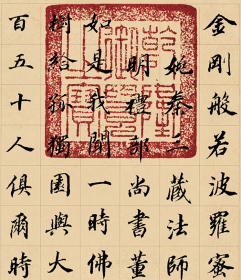 金剛般若波羅蜜
姚秦三藏法師
明禮部尚書董
如是我聞一時佛
樹給孤獨園與大
百五十人俱爾時
乾隆
御覽
之寶